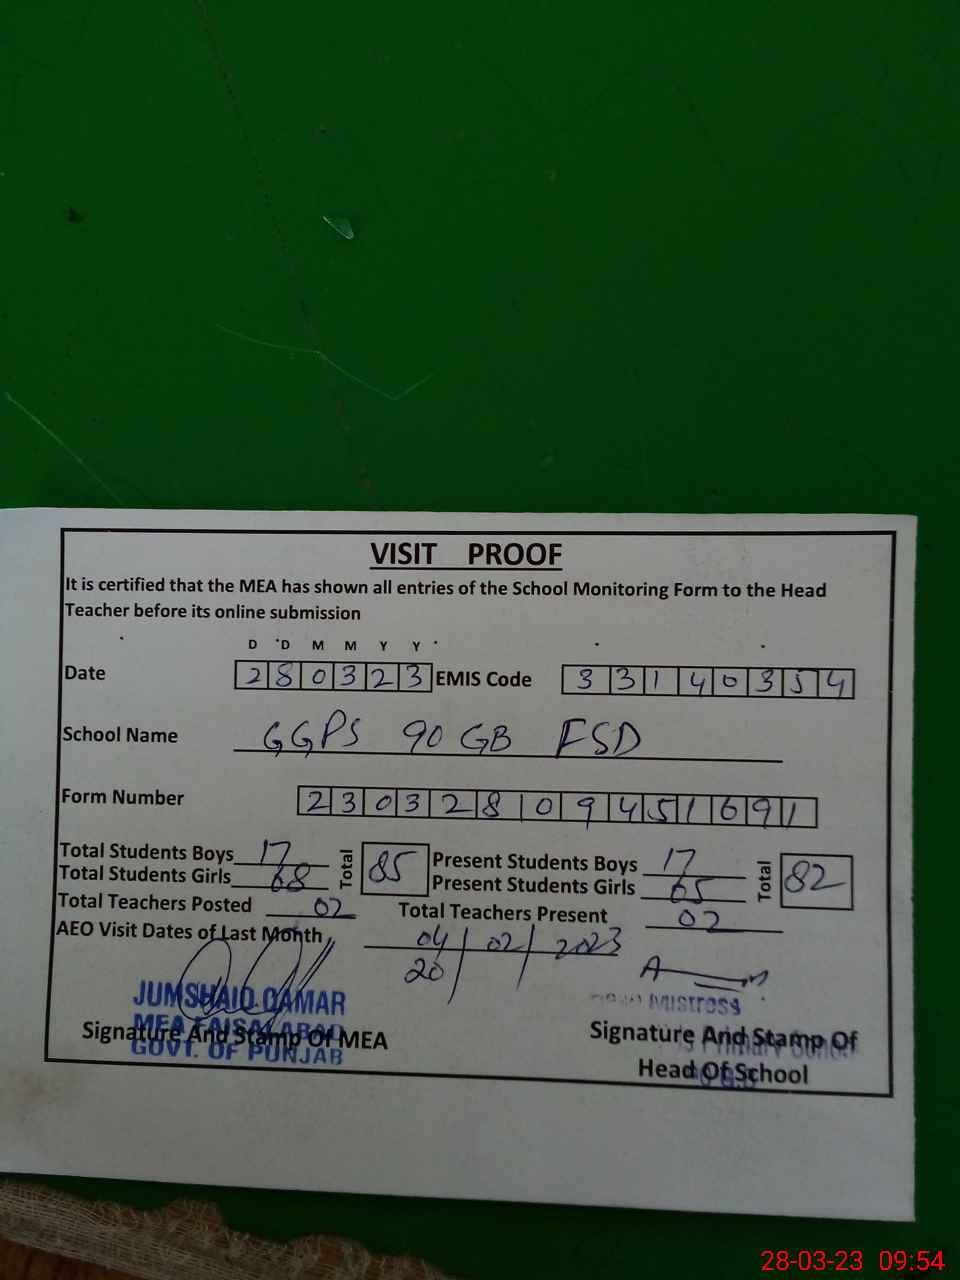 VISIT PROOF
It is certified that the MEA has shown all entries of the School Monitoring Form to the Head
Teacher before its online submission
D D M M Y Y
Date 2 8 0 3 2 3 EMIS Code 3 3 1 4 0 3 5 4
School Name GGPS 90 GB FSD
Form Number 2 3 0 3 2 8 0 9 4 5 1 6 9 1
Total Students Boys 17 Total 85 Present Students Boys 17 Total 82
Total Students Girls 68 Present Students Girls 65
Total Teachers Posted 02 Total Teachers Present 02
AEO Visit Dates of Last Month 04/02/2023
20
JUMSHAID QAMAR
MEA FAISALABAD
GOVT. OF PUNJAB
Signature And Stamp Of MEA
Mistress
Signature And Stamp Of
Primary School
Head Of School
28-03-23 09:54